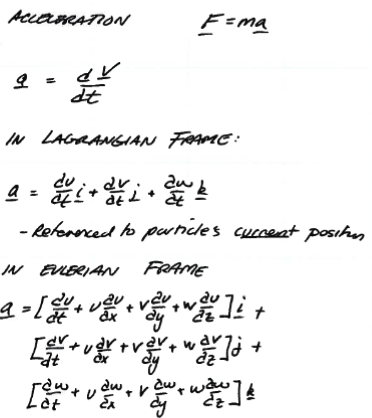 ACCELERATION F = ma
a = dV/dt
IN LAGRANGIAN FRAME:
a = du/dt i + dv/dt j + ∂w/∂t k
- Referenced to particle's current position
IN EULERIAN FRAME
a = [∂u/∂t + u ∂u/∂x + v ∂u/∂y + w ∂u/∂z] i +
[∂v/∂t + u ∂v/∂x + v ∂v/∂y + w ∂v/∂z] j +
[∂w/∂t + u ∂w/∂x + v ∂w/∂y + w ∂w/∂z] k